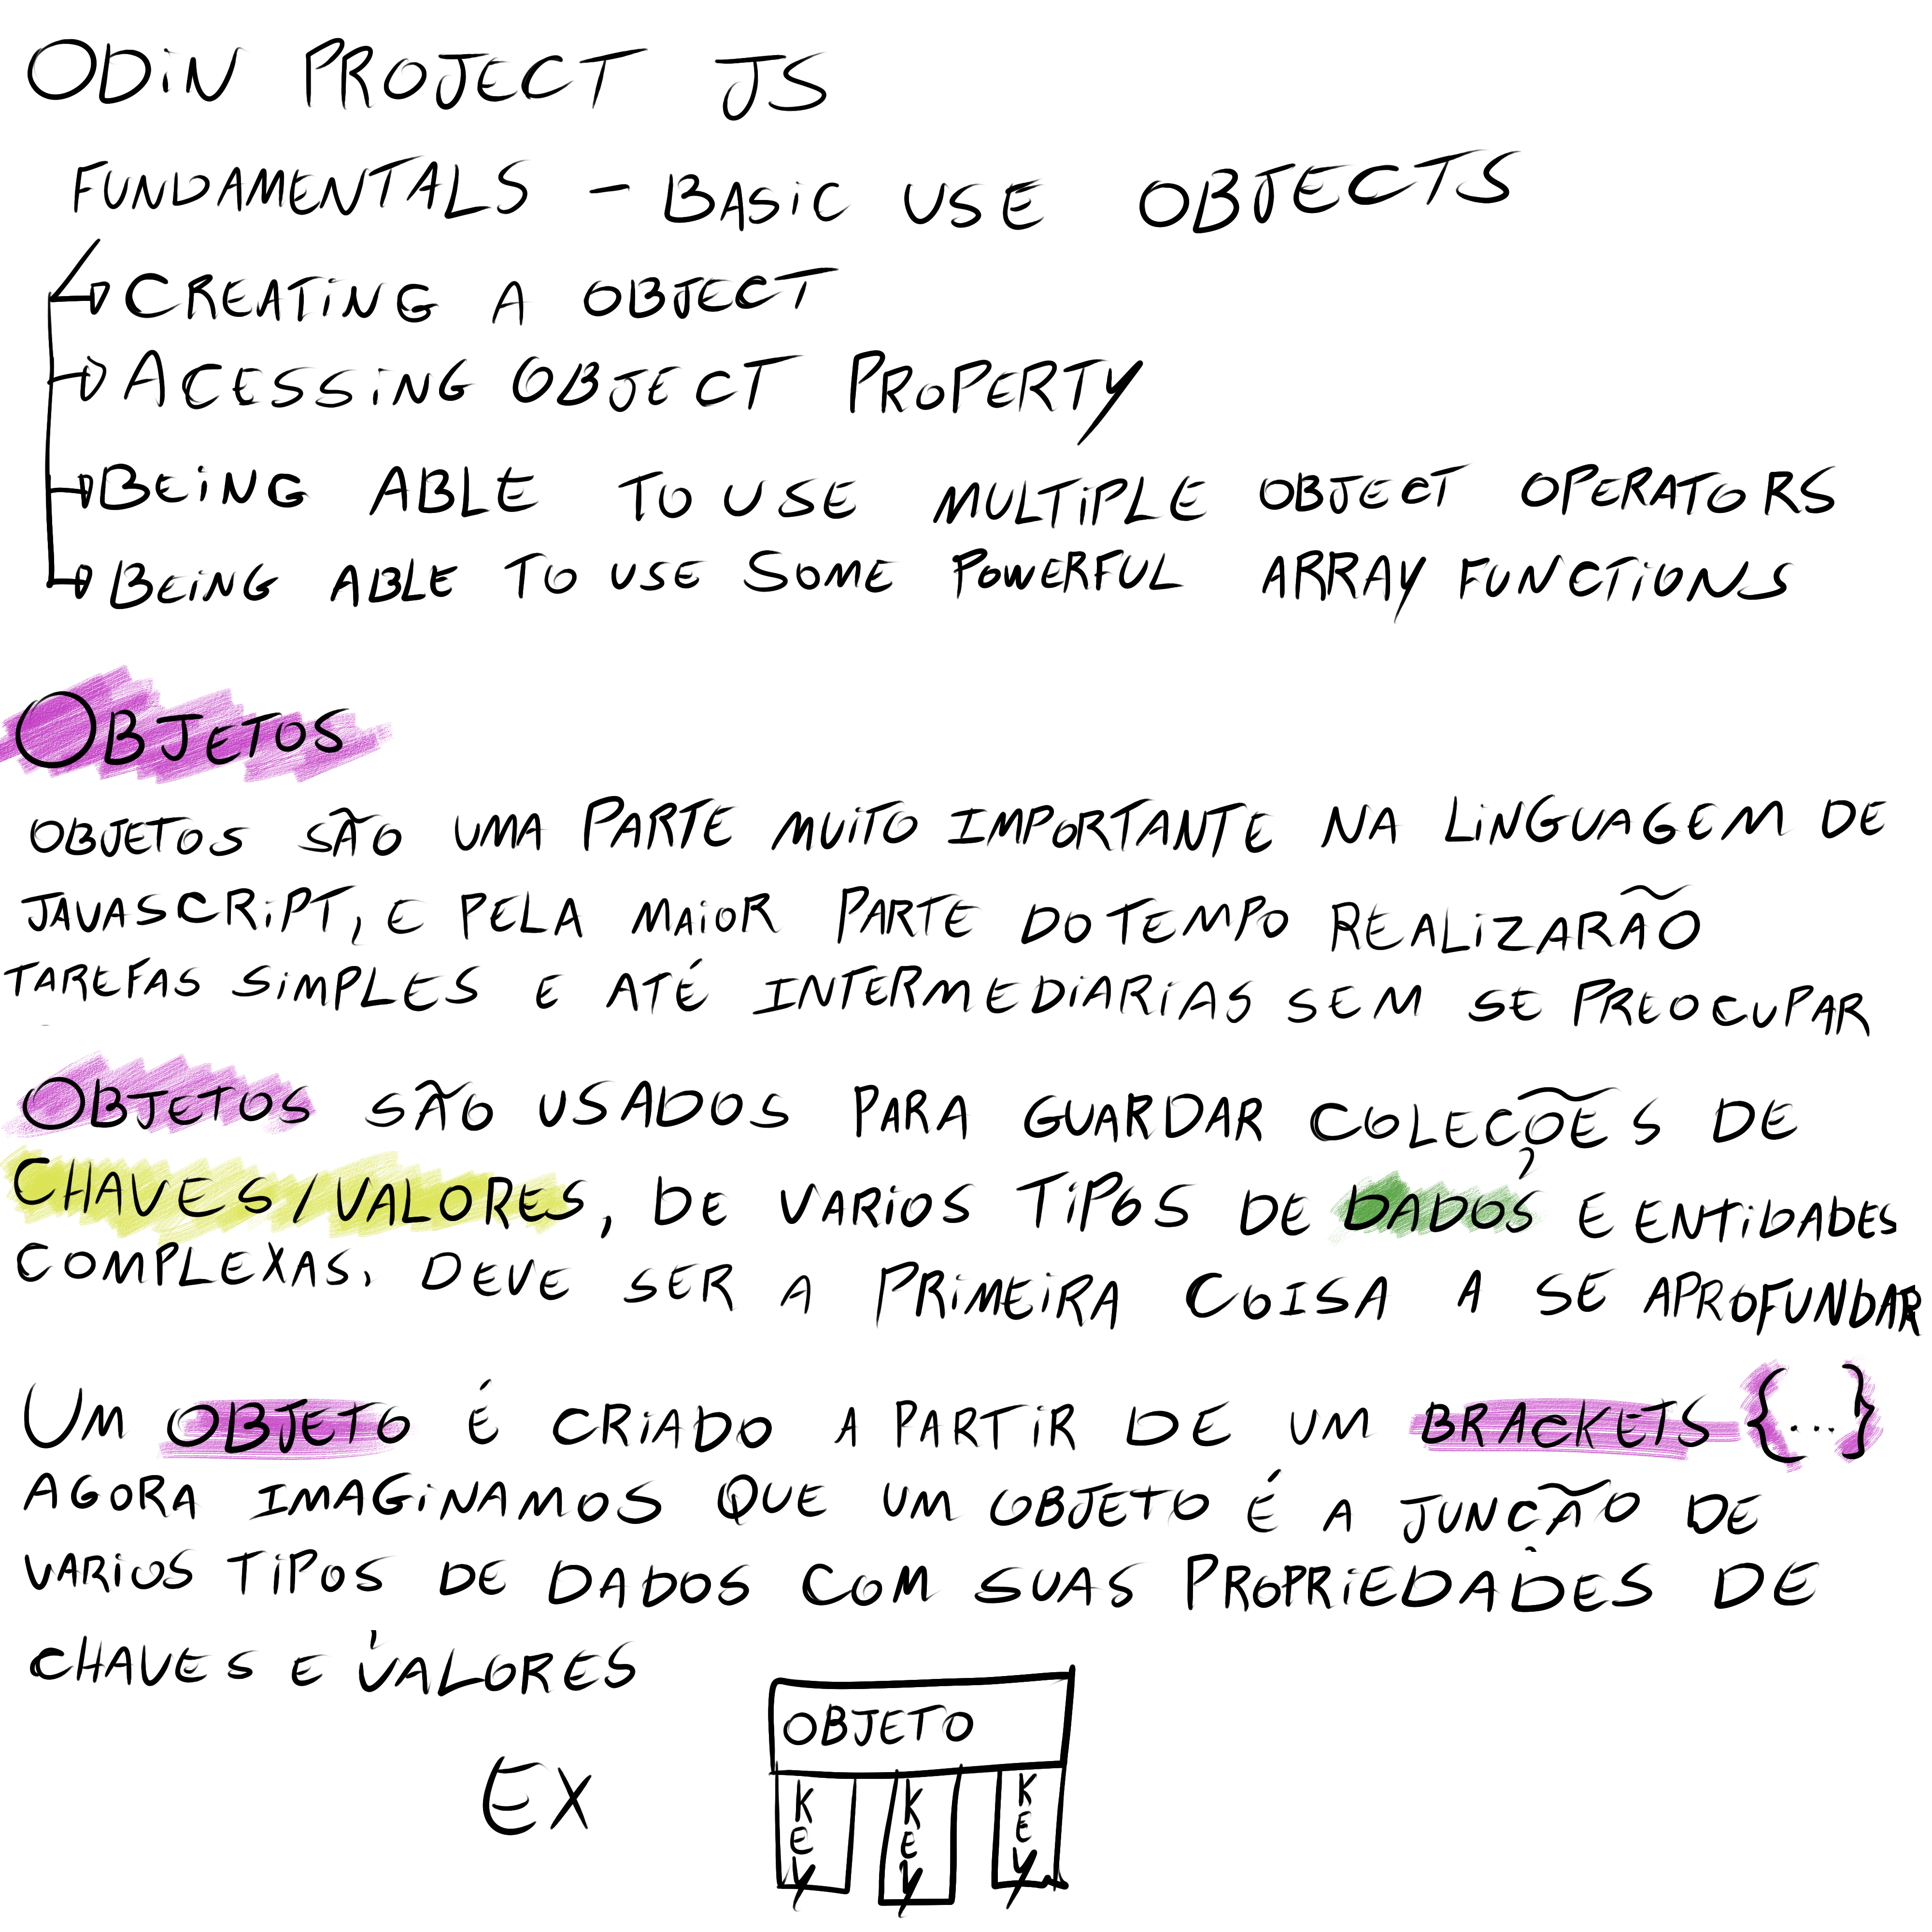 ODiN PROJECT JS
FUNDAMENTALS - BASiC USE OBJECTS
CREATiNG A OBJECT
ACESSiNG OBJECT PROPERTY
BEiNG ABLE TO USE MULTiPLE OBJECT OPERATORS
BEiNG ABLE TO USE SOME POWERFUL ARRAY FUNCTiONS
OBJETOS
OBJETOS SÃO UMA PARTE MUiTO IMPORTANTE NA LiNGUAGEM DE
JAVASCRiPT, E PELA MAiOR PARTE DO TEMPO REALiZARÃO
TAREFAS SiMPLES E ATÉ INTERMEDiARiAS SEM SE PREOCUPAR
OBJETOS SÃO USADOS PARA GUARDAR COLEÇÕES DE
CHAVES/VALORES, DE VARiOS TiPOS DE DADOS E ENTiDADES
COMPLEXAS. DEVE SER A PRiMEiRA COISA A SE APROFUNDAR
UM OBJETO É CRiADO A PARTiR DE UM BRACKETS {...}
AGORA IMAGiNAMOS QUE UM OBJETO É A JUNÇÃO DE
VARiOS TiPOS DE DADOS COM SUAS PROPRiEDADES DE
CHAVES E VALORES
OBJETO
EX
KEY KEY KEY